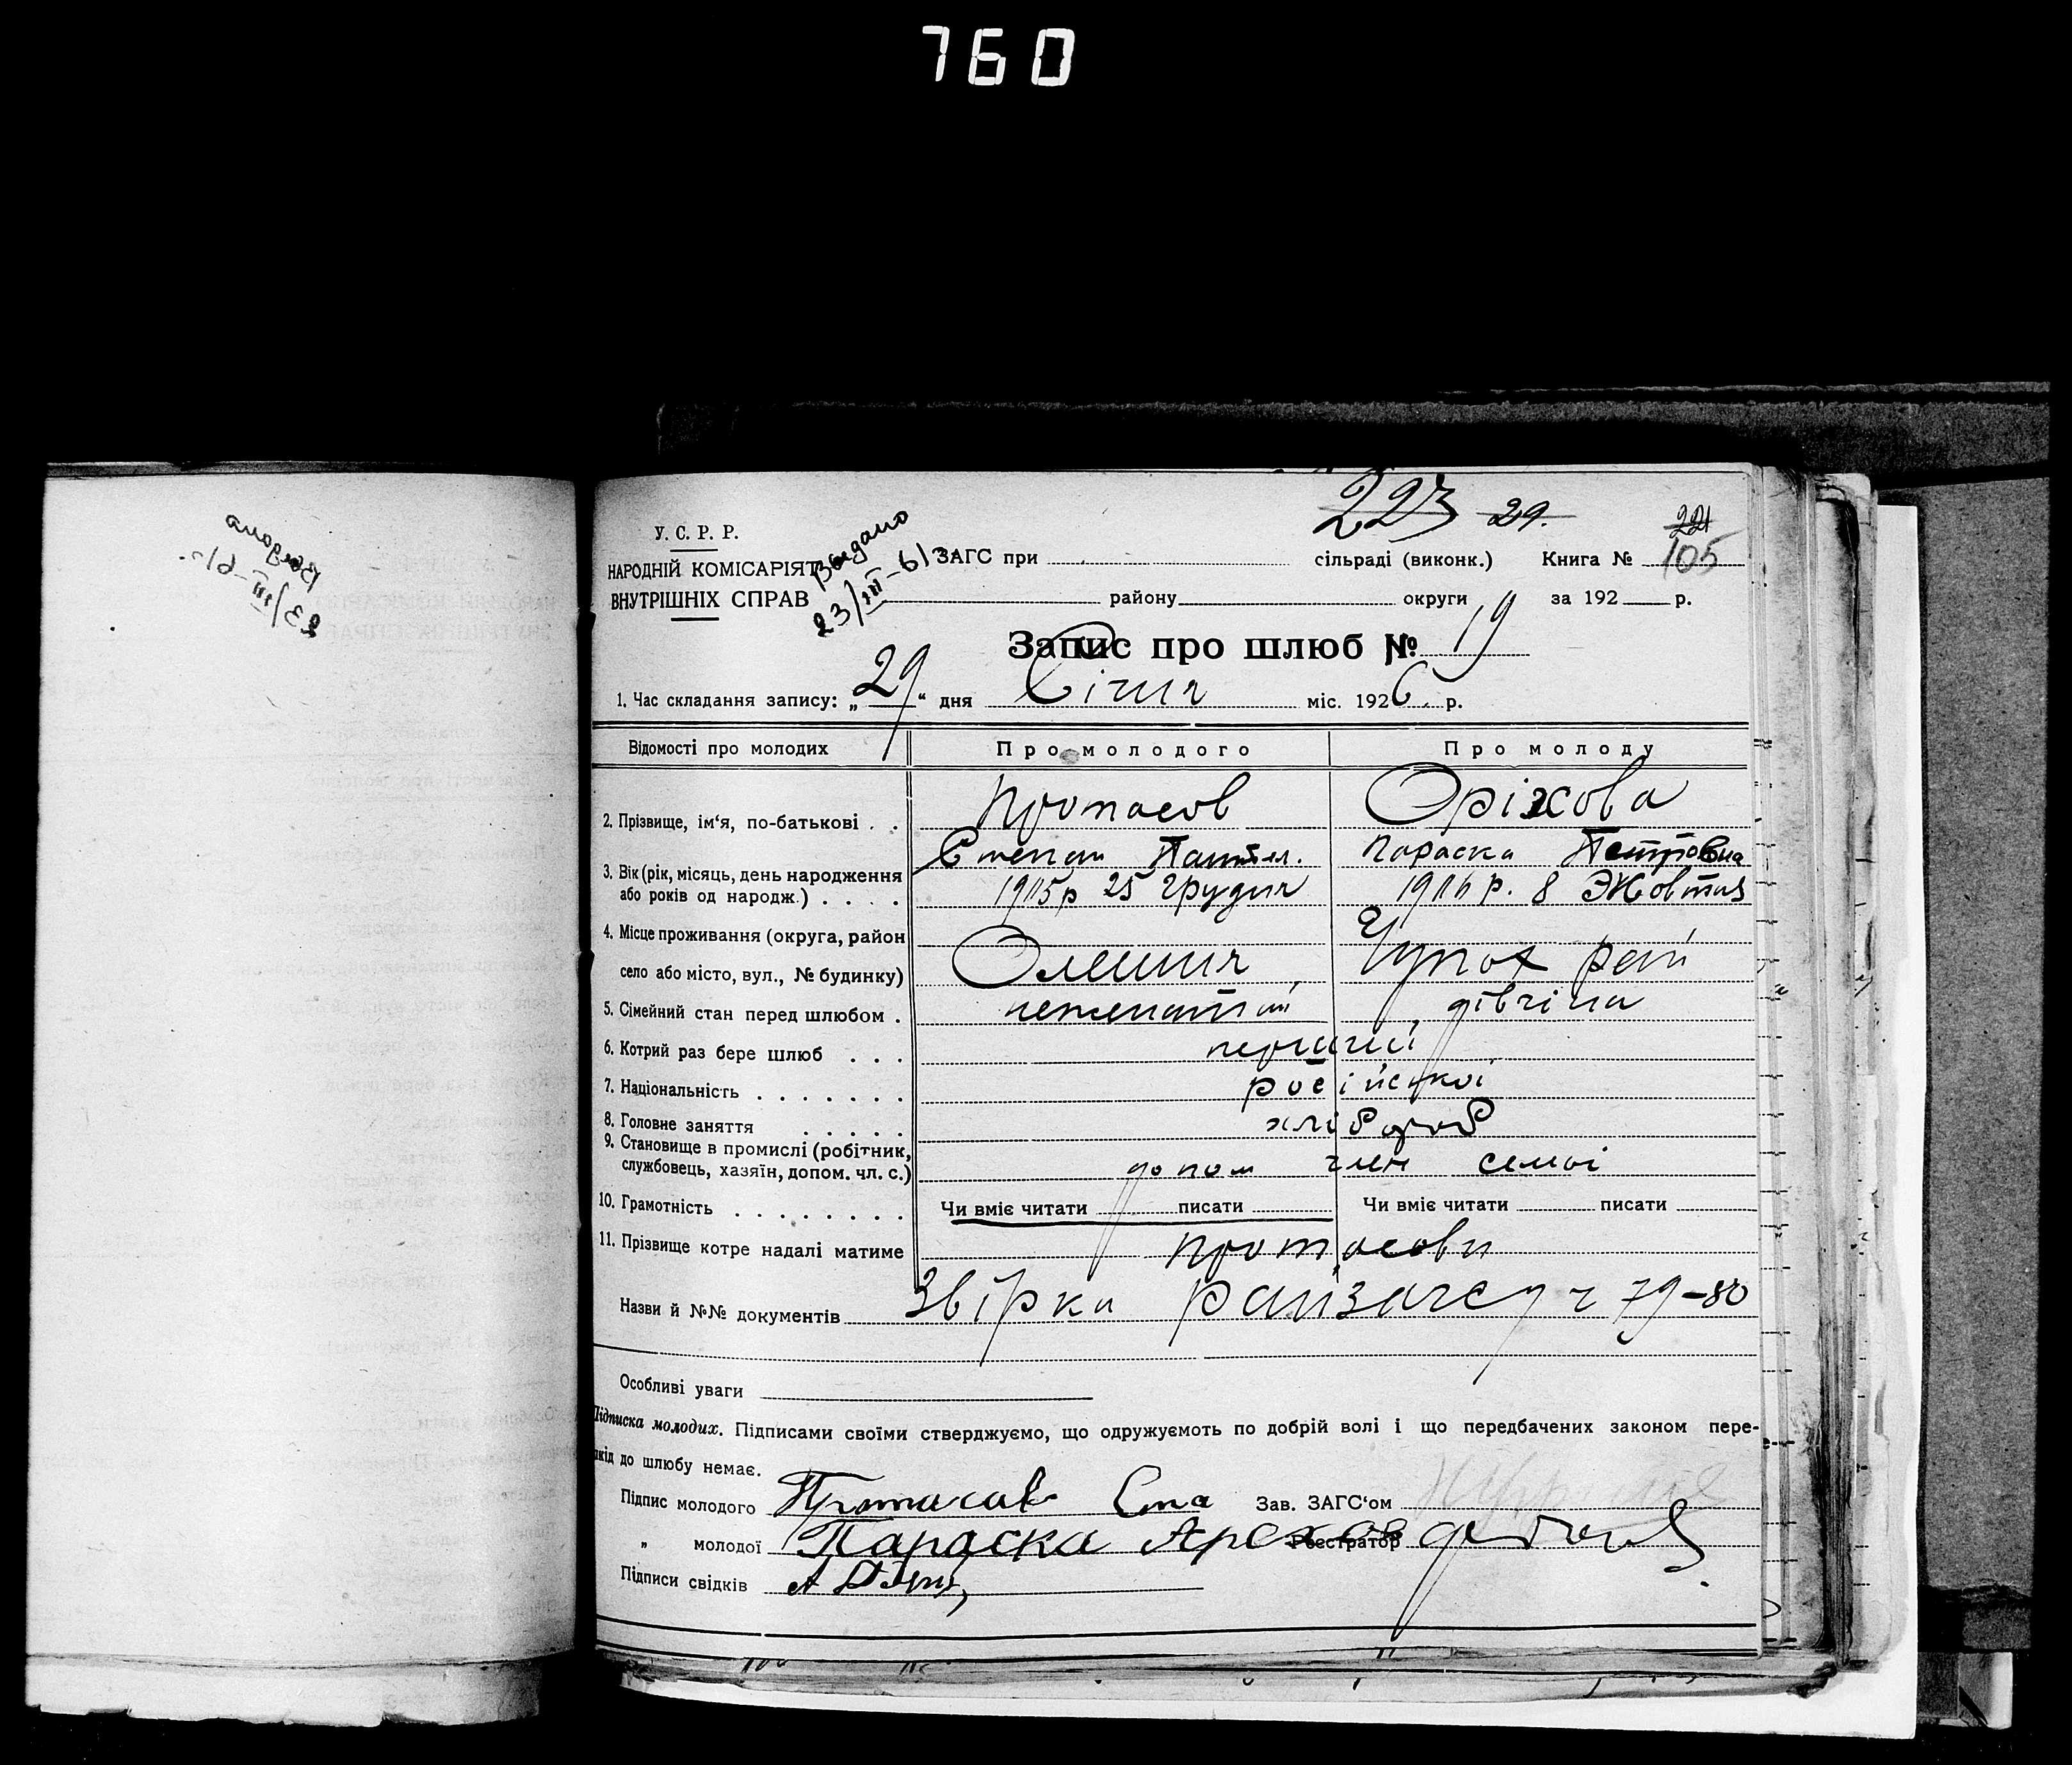 760
223 29. 221
У. С. Р. Р.
Выдано
23/III-61
НАРОДНІЙ КОМІСАРІЯТ ЗАГС при сільраді (виконк.) Книга № 105
ВНУТРІШНІХ СПРАВ району округи за 192 р.
Запис про шлюб № 19
1. Час складання запису: „29“ дня Січня міс. 1926 р.
Відомості про молодих Про молодого Про молоду
Протасов Оріхова
2. Прізвище, ім‘я, по-батькові . .
Степан Пантел. Параска Петровна
3. Вік (рік, місяць, день народження
або років од народж.) . . . . 1905р 25 Грудня 1906 р. 8 Жовтня
4. Місце проживання (округа, район
село або місто, вул., № будинку) Олешня рай
5. Сімейний стан перед шлюбом . неженатий дівчіна
6. Котрий раз бере шлюб . . . перший
7. Національність . . . . . . . російскої
8. Головне заняття . . . . . хлібороб
9. Становище в промислі (робітник,
службовець, хазяїн, допом. чл. с.) допом член семьі
10. Грамотність . . . . . . . . Чи вміє читати писати Чи вміє читати писати
11. Прізвище котре надалі матиме Протасови
Назви й №№ документів Звірка райзагсу ч 79-80
Особливі уваги
Підписка молодих. Підписами своїми стверджуємо, що одружуємоть по добрій волі і що передбачених законом пере-
шкід до шлюбу немає.
Підпис молодого Протасав Сте Зав. ЗАГС‘ом
„ молодої Параска Арехов Реєстратор
Підписи свідків